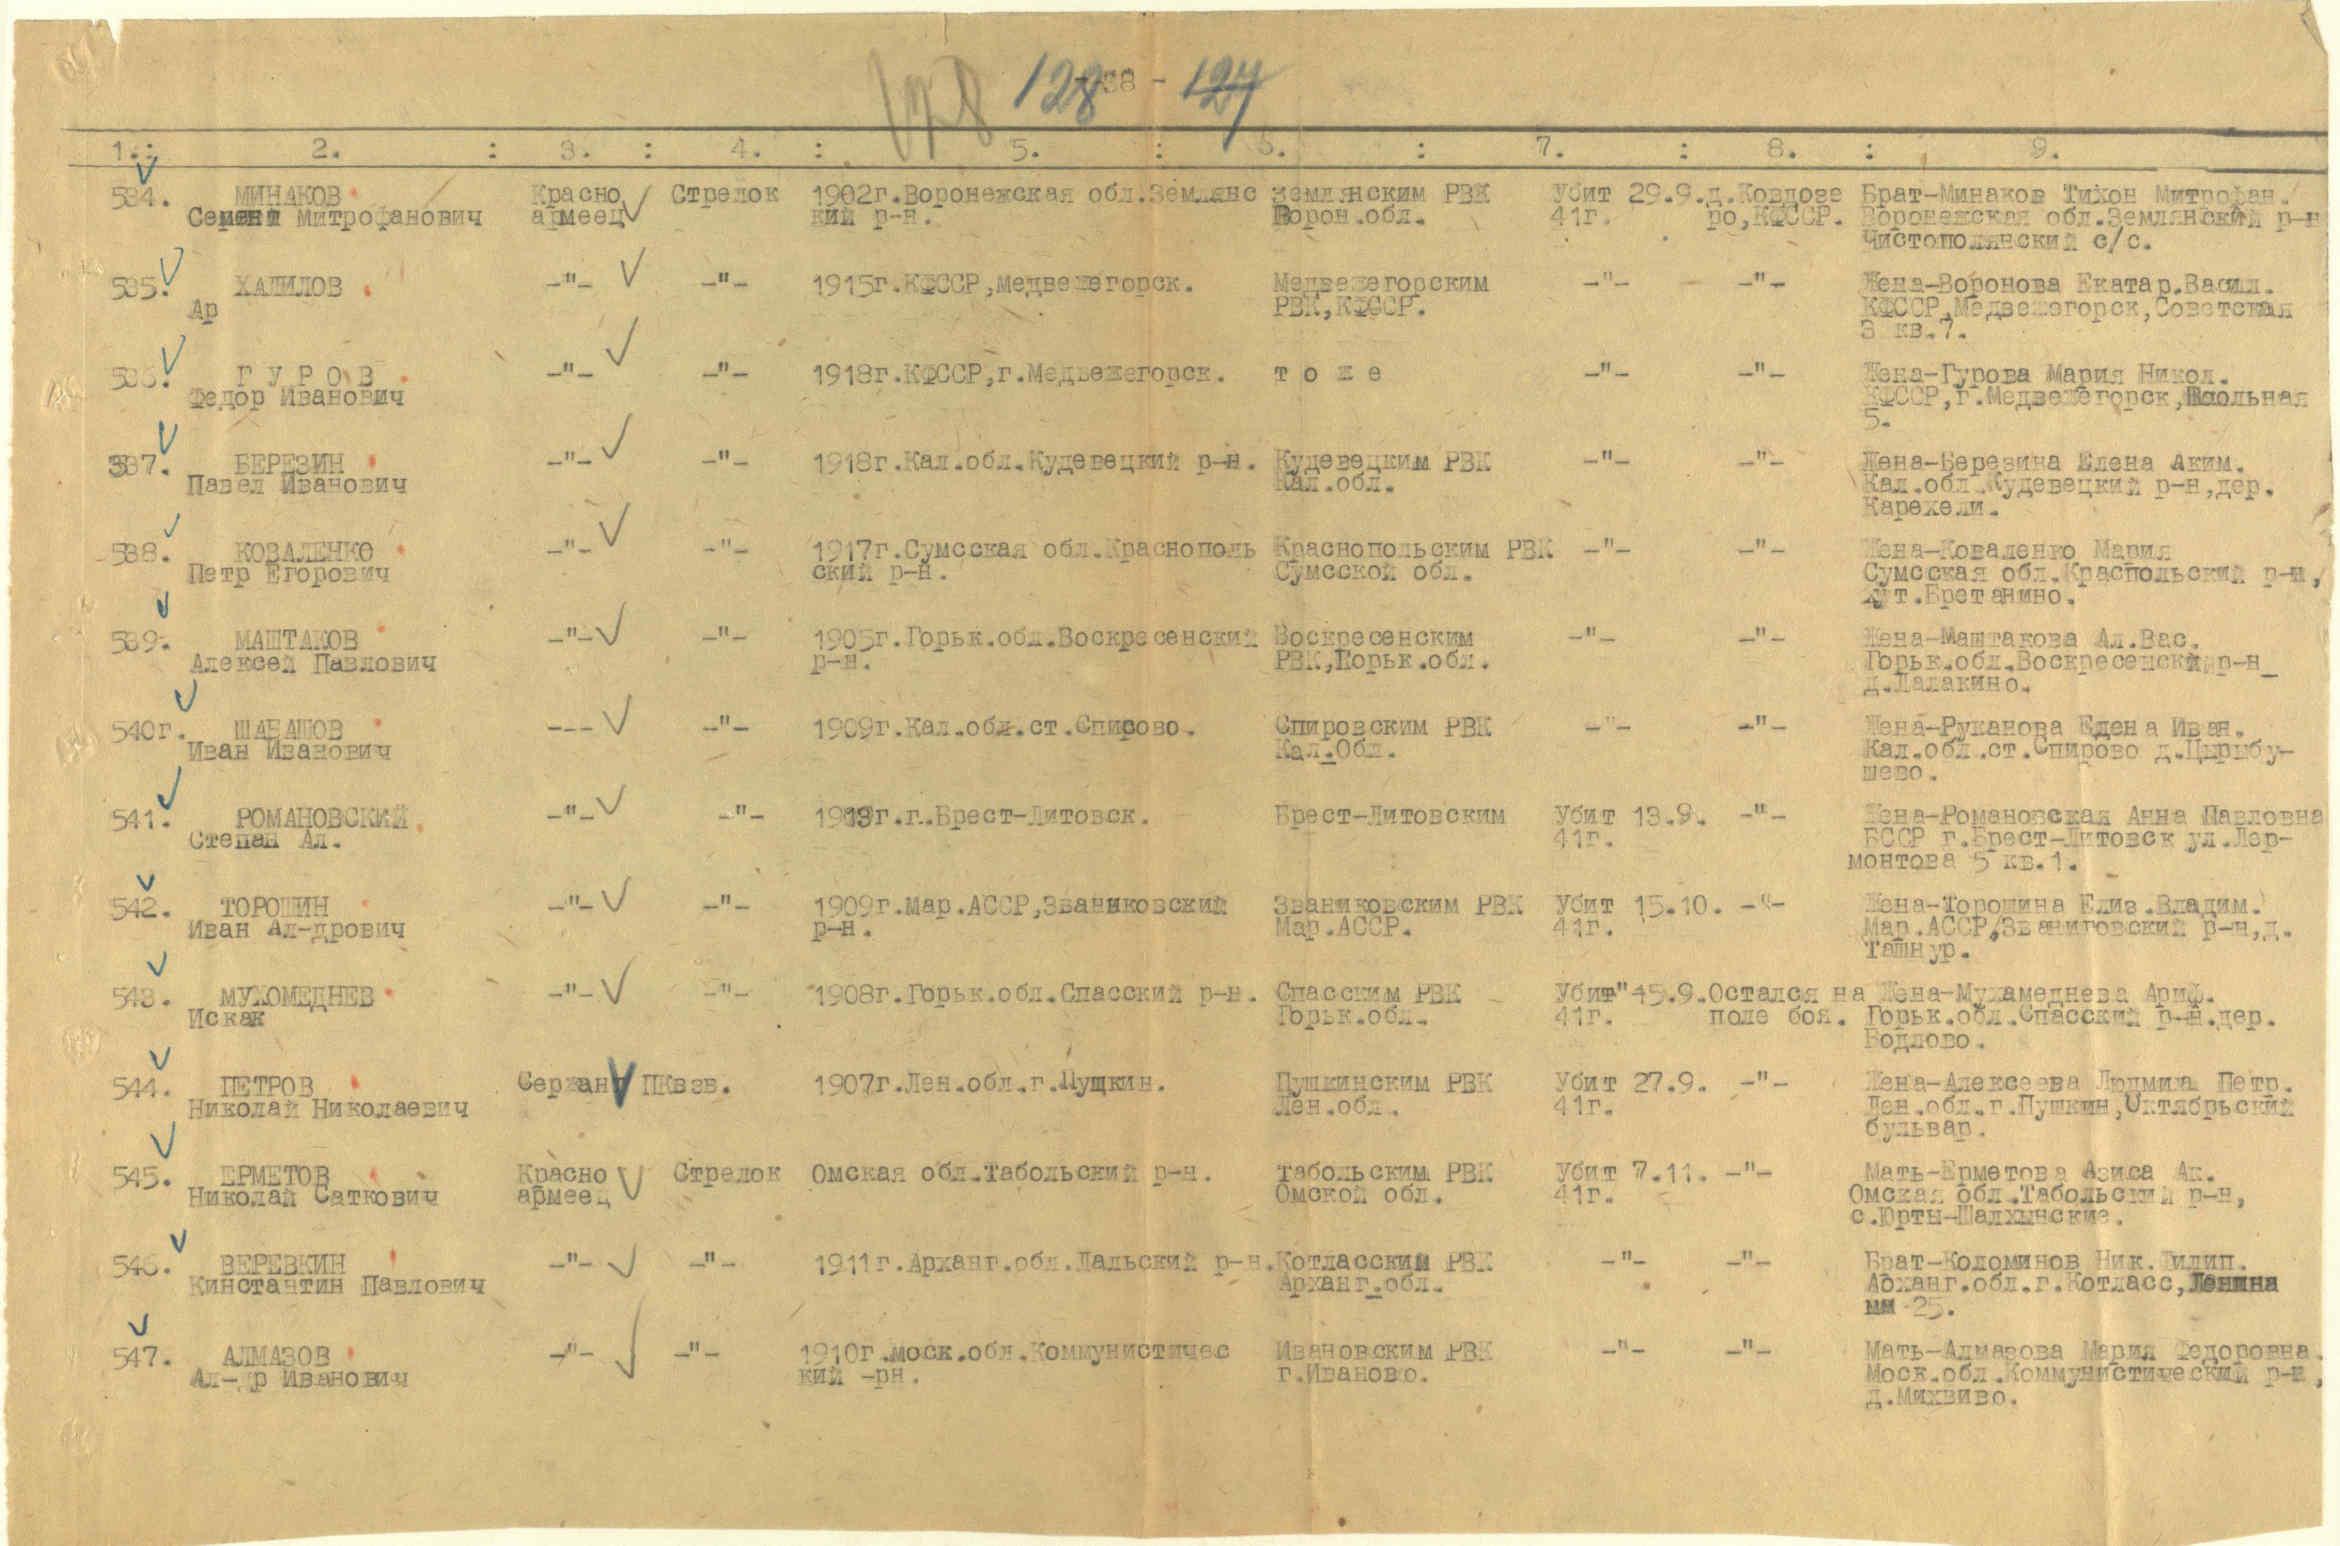 128 128 -38- 127
1.: 2. : 3. : 4. : 5. : 6. : 7. : 8. : 9.
534. МИНАКОВ Красно Стрелок 1902г.Воронежская обл.Землянс Землянским РВК Убит 29.9. д.Ковдозе Брат-Минаков Тихон Митрофан.
Семен Митрофанович армеец кий р-н. Ворон.обл. 41г. ро,КФССР. Воронежская обл.Землянский р-н
Чистополянский с/с.
535. ХАЛИЛОВ -"- -"- 1915г.КФССР,Медвежегорск. Медвежегорским -"- -"- Жена-Воронова Екатар.Васил.
Ар РВК,КФССР. КФССР,Медвежегорск,Советская
3 кв.7.
536. Г У Р О В -"- -"- 1918г.КФССР,г.Медвежегорск. т о ж е -"- -"- Жена-Гурова Мария Никол.
Федор Иванович КФССР,г.Медвежегорск,Школьная
5.
537. БЕРЕЗИН -"- -"- 1918г.Кал.обл.Кудевецкий р-н. Кудевецким РВК -"- -"- Жена-Березина Елена Аким.
Павел Иванович Кал.обл. Кал.обл.Кудевецкий р-н,дер.
Карехели.
538. КОВАЛЕНКО -"- -"- 1917г.Сумсская обл.Краснополь Краснопольским РВК -"- -"- Жена-Коваленко Мария
Петр Егорович ский р-н. Сумсской обл. Сумсская обл.Краспольский р-н,
хут.Бретанино.
539. МАШТАКОВ -"- -"- 1905г.Горьк.обл.Воскресенский Воскресенским -"- -"- Жена-Маштакова Ал.Вас.
Алексей Павлович р-н. РВК,Горьк.обл. Горьк.обл.Воскресенский р-н
д.Палакино.
540г. ШАБАШОВ --- -"- 1909г.Кал.обл.ст.Спирово. Спировским РВК -"- -"- Жена-Руканова Елена Иван.
Иван Иванович Кал.Обл. Кал.обл.ст.Спирово д.Цырыбу-
шево.
541. РОМАНОВСКИЙ -"- -"- 1913г.г.Брест-Литовск. Брест-Литовским Убит 13.9. -"- Жена-Романовская Анна Павловна
Степан Ал. 41г. БССР г.Брест-Литовск ул.Лер-
монтова 5 кв.1.
542. ТОРОШИН -"- -"- 1909г.Мар.АССР,Званиковский Званиковским РВК Убит 15.10. -"- Жена-Торошина Елиз.Владим.
Иван Ал-дрович р-н. Мар.АССР. 41г. Мар.АССР,Званиговский р-н,д.
Ташнур.
543. МУХОМЕДНЕВ -"- -"- 1908г.Горьк.обл.Спасский р-н. Спасским РВК Убит"15.9. Остался на Жена-Мухамеднева Ариф.
Искак Горьк.обл. 41г. поле боя. Горьк.обл.Спасский р-н.дер.
Водлово.
544. ПЕТРОВ Сержант ПКвзв. 1907г.Лен.обл.г.Пушкин. Пушкинским РВК Убит 27.9. -"- Жена-Алексеева Людмила Петр.
Николай Николаевич Лен.обл. 41г. Лен.обл.г.Пушкин,Октябрьский
бульвар.
545. ЕРМЕТОВ Красно Стрелок Омская обл.Табольский р-н. Табольским РВК Убит 7.11. -"- Мать-Ерметова Азиса Ак.
Николай Саткович армеец Омской обл. 41г. Омская обл.Табольский р-н,
с.Юрты-Шалхынские.
546. ВЕРЕВКИН -"- -"- 1911г.Арханг.обл.Лальский р-н. Котласский РВК -"- -"- Брат-Коломинов Ник.Филип.
Кинстантин Павлович Арханг.обл. Арханг.обл.г.Котласс,Ленина
25.
547. АЛМАЗОВ -"- -"- 1910г.моск.обл.Коммунистичес Ивановским РВК -"- -"- Мать-Алмазова Мария Федоровна.
Ал-др Иванович кий -рн. г.Иваново. Моск.обл.Коммунистический р-н,
д.Михвиво.